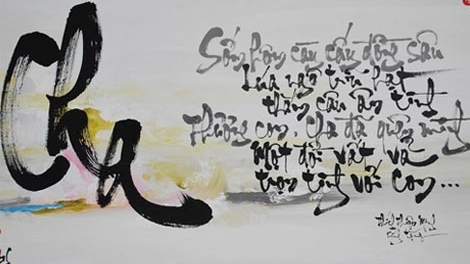 Cha
Sớm hôm cày cấy đồng sâu
Lúa ngô trĩu hạt
thắm câu ân tình
Thương con, Cha đã quên mình
Một đời vất vả
trọn tình với con...